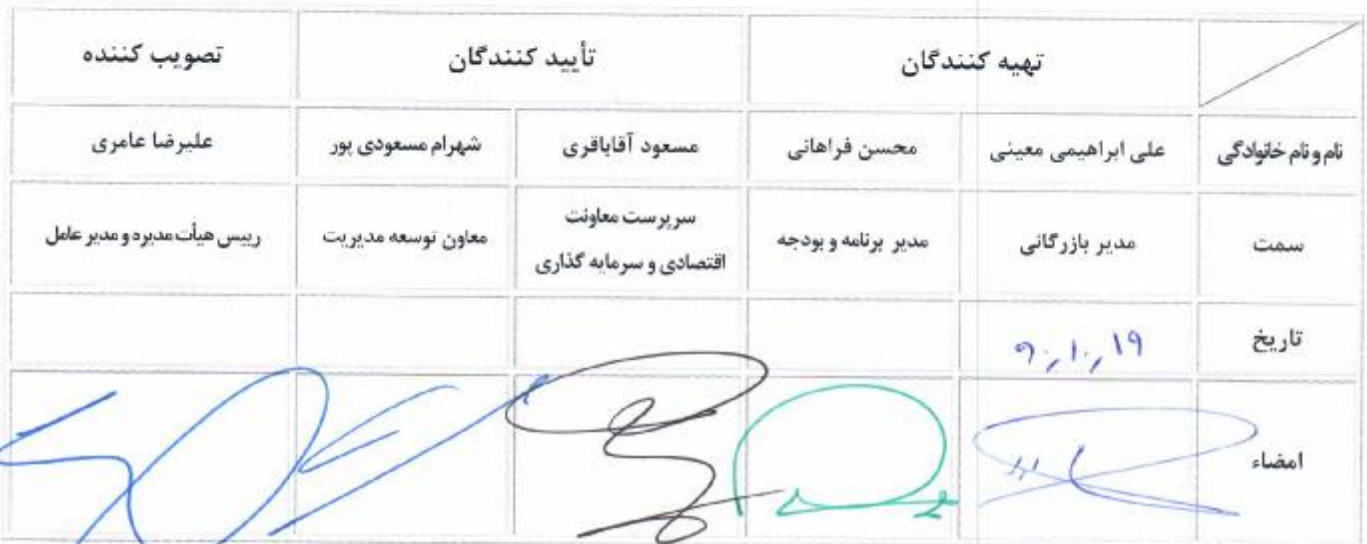 تهیه کنندگان تأیید کنندگان تصویب کننده
نام و نام خانوادگی علی ابراهیمی معینی محسن فراهانی مسعود آقاباقری شهرام مسعودی پور علیرضا عامری
سمت مدیر بازرگانی مدیر برنامه و بودجه سرپرست معاونت اقتصادی و سرمایه گذاری معاون توسعه مدیریت رییس هیأت مدیره و مدیر عامل
تاریخ ۹۰,۱۰,۱۹
امضاء